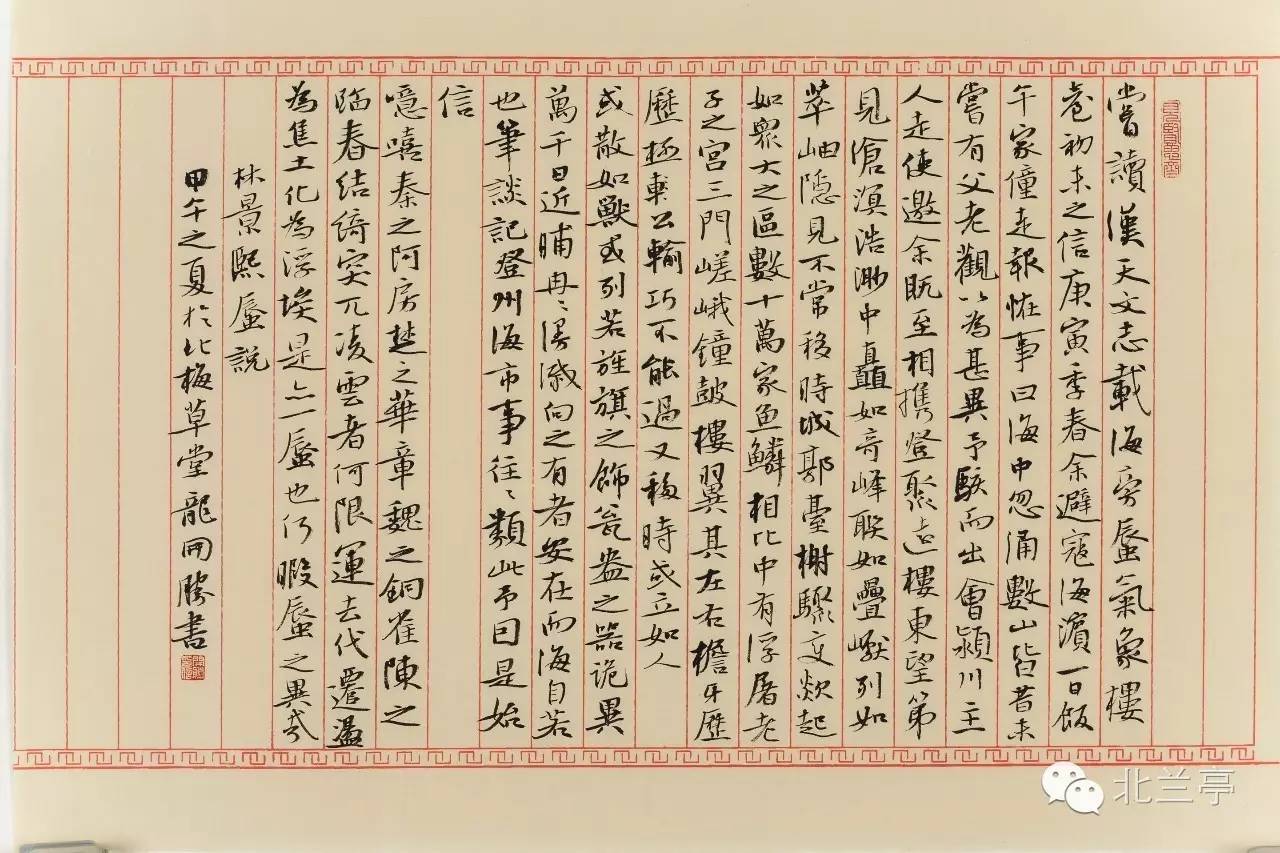 嘗讀漢天文志載海旁蜃氣象樓
臺初未之信庚寅季春余避寇海濱一日飯
午家僮走報怪事曰海中忽涌數山皆昔未
嘗有父老觀以為甚異予駭而出會潁川主
人走使邀余既至相携登聚遠樓東望第
見滄溟浩渺中矗如奇峰聯如疊巘列如
萃岫隱見不常移時城郭臺榭驟變欻起
如眾大之區數十萬家魚鱗相比中有浮屠老
子之宮三門嵯峨鐘鼓樓翼其左右檐牙歷
歷極輊公輸巧不能過又移時或立如人
或散如獸或列若旌旗之飾瓮盎之器詭異
萬千日近晡冉々漫滅向之有者安在而海自若
也筆談記登州海市事往々類此予曰是始
信
噫嘻秦之阿房楚之華章魏之銅雀陳之
臨春結綺突兀凌雲者何限運去代遷盪
為焦土化為浮埃是亦一蜃也何暇蜃之異哉
林景熙蜃說
甲午之夏於北梅草堂龍開勝書
北兰亭